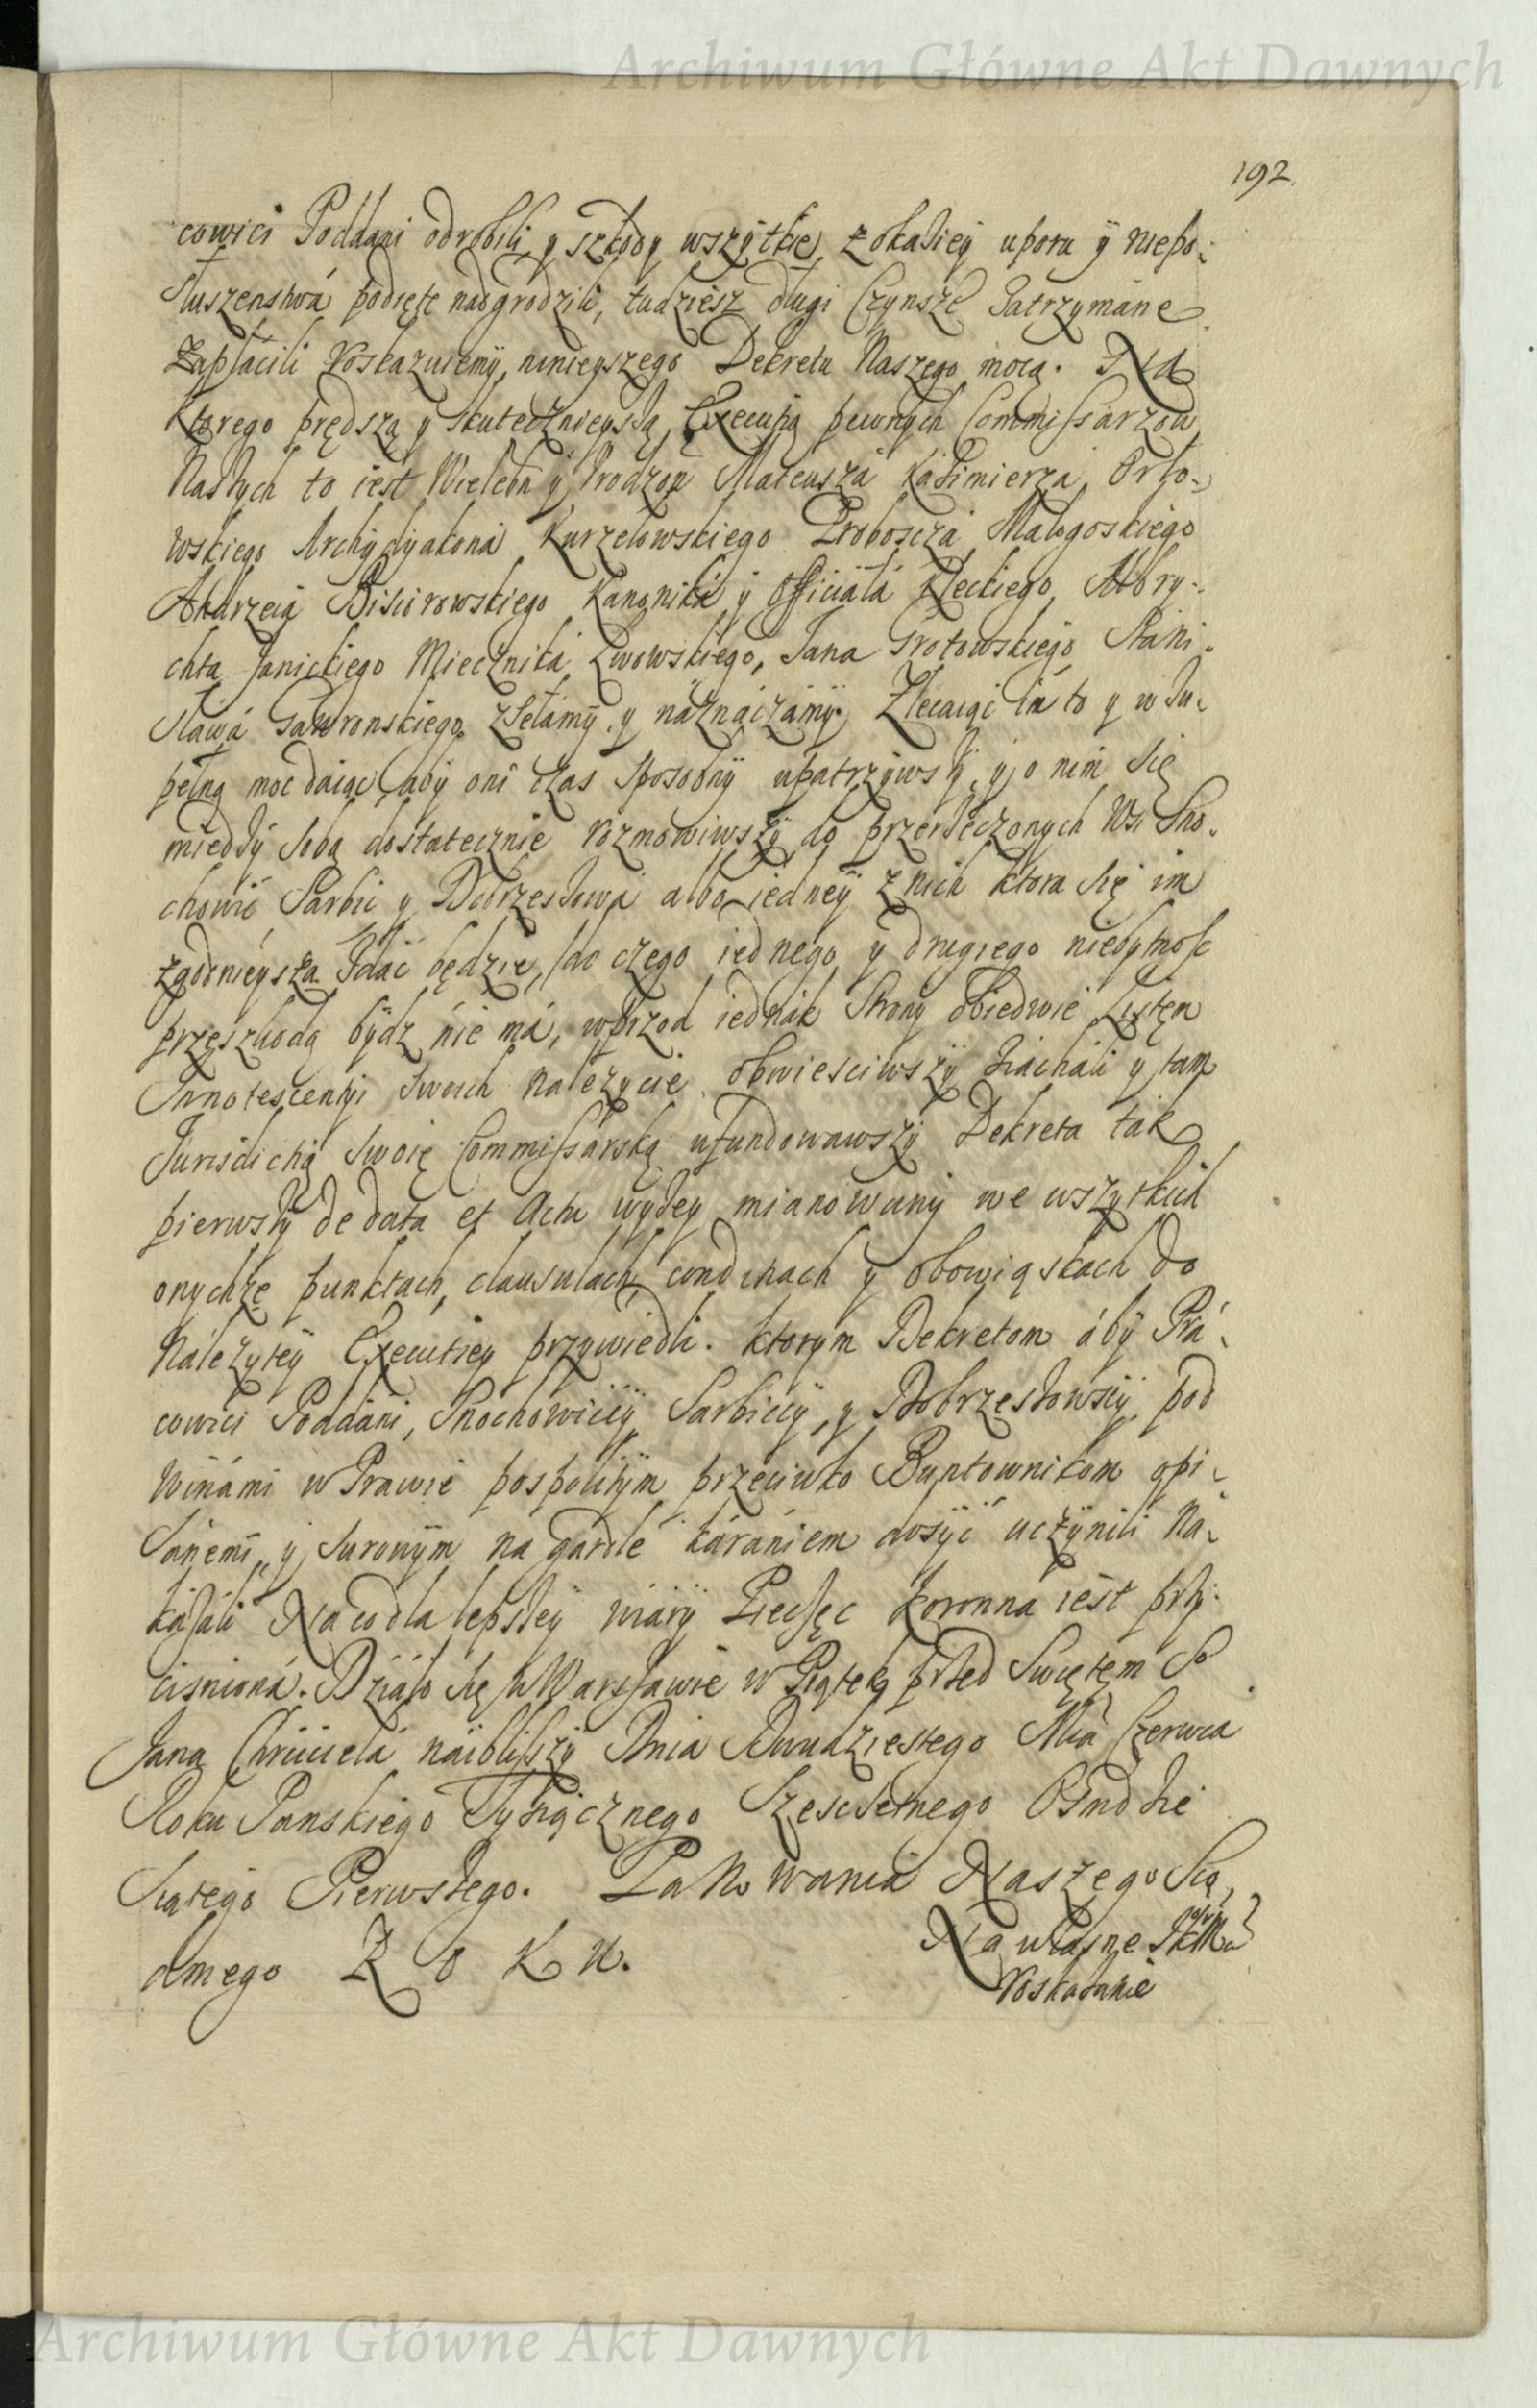 Archiwum Główne Akt Dawnych
192
cowici Poddani odrobili, y szkody wszytkie z okasiey uporu y niepo-
słuszenstwá podięte nadgrodzili, tudziesz długi Czynsze Zatrzymáne
Zapłacili Roskazuiemy, ninieyszego Dekretu Naszego mocą. Na
Ktorego prędszą y skutecznieyszą Executią pewnych Commissarzow
Naszych to iest Wielebn y Vrodzon Mateusza Káźimierza Orło-
wskiego Archydyakoná Kurzelowskiego Proboszczá Małogoskiego
Andrzeiá Bisiorowskiego Kanoniká y Officiałá Kieleckiego, Olbry-
chta Janickiego Miecznika Lwowskiego, Jana Grotowskiego Stani-
sławá Gawronskiego zsełamy y náznáczámy. Zlecaiąc iá to y w zu-
pełną moc daiąc, aby oni czas sposobny upatrzywszy y o nim się
miedzy sobą dostatecznie rozmowiwszy do przerzeczonych Wsi Sno-
chowic Sarbic y Dobrzeszowá albo iedney z nich ktora się im
zgodnieysza zdáć będzie, do czego iednego y drugiego niebytnosc
przeszkodą bydz nie má, wprzod iednák Strony obiedwie Listem
Innotescentyi swoich należycie obwiesciwszy ziacháli y tam
Jurisdictią swoię Commissárską ufundowawszy Dekreta tak
pierwszy de data et Actu wyżey mianowany we wszytkich
onychże punktach, clausulach, conditiach y obowiąskach do
Należytey Executiey przywiedli. ktorym Dekretom áby Prá-
cowici Poddáni, Snochowiccy Sarbiccy, y Dobrzeszowscy pod
winámi w Prawie pospolitym przeciwko Buntownikom opi-
sánemi y surowym na gardle káraniem dosyć uczynili Ná-
kázáli Na co dla lepszey wiáry Pieczęc Koronna iest przy-
cisnioná. Działo się w Warszawie w Piątek przed Swiętem S°
Jana Chrzciciela náiblizszy Dnia Dwudziestego Mca Czerwca
Roku Panskiego Tysiącznego Szescsetnego Osmdzie
siątego Pierwszego. Panowania Naszego Sio
dmego Roku.
Na własne JKMci
Roskazanie
Archiwum Główne Akt Dawnych